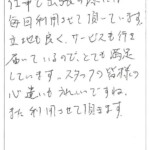 仕事で出張の際には
毎回利用させて頂っています。
立地も良く、サービスも行き
届いているので、とても満足
しています。スタッフの皆様の
心遣いもうれしいですね。
また利用させて頂きます。